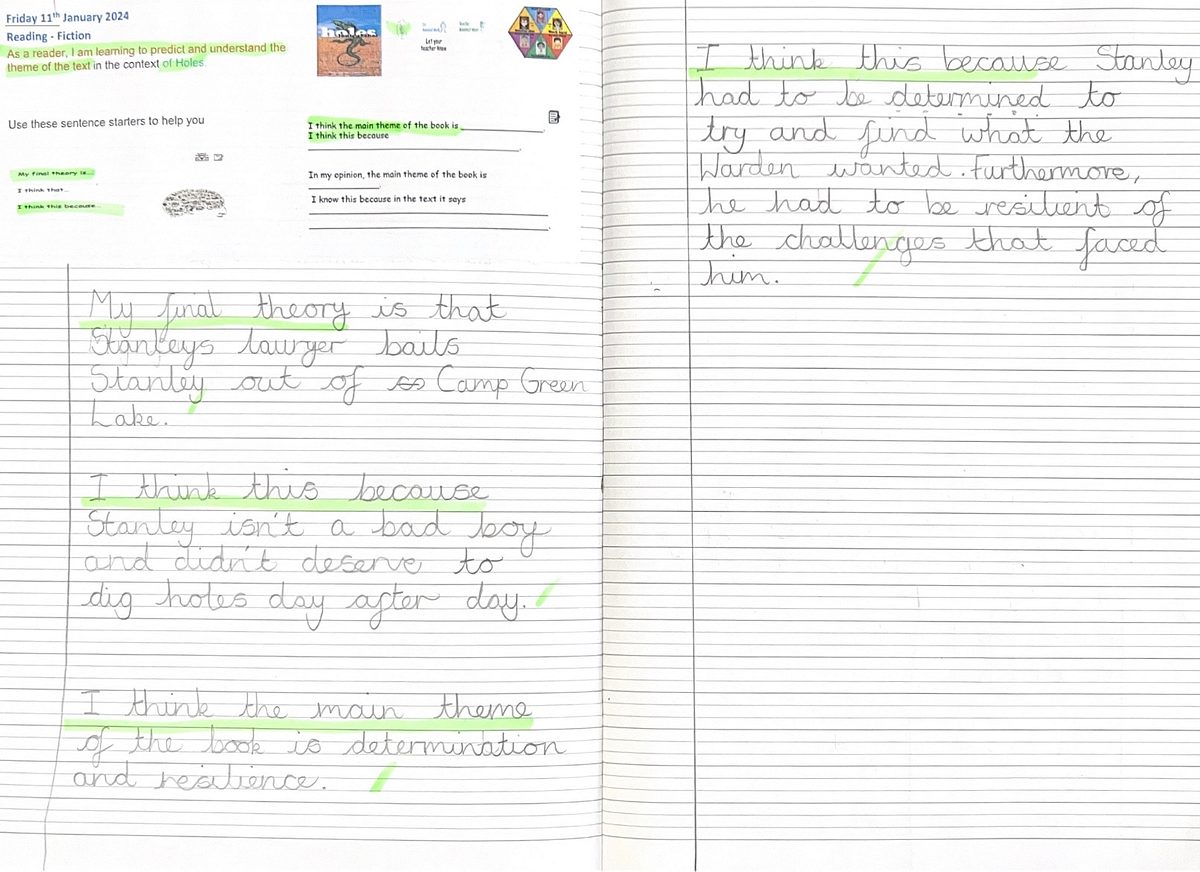 Friday 11th January 2024
Reading - Fiction
As a reader, I am learning to predict and understand the
theme of the text in the context of Holes.
holes
Let your
teacher know
Use these sentence starters to help you
My final theory is...
I think that...
I think this because...
I think the main theme of the book is ____________.
I think this because
____________.
In my opinion, the main theme of the book is
____________.
I know this because in the text it says
____________
____________.
My final theory is that
Stanleys lawyer bails
Stanley out of Camp Green
Lake.
I think this because
Stanley isn't a bad boy
and didn't deserve to
dig holes day after day.
I think the main theme
of the book is determination
and resilience.
I think this because Stanley
had to be determined to
try and find what the
Warden wanted. Furthermore,
he had to be resilient of
the challenges that faced
him.